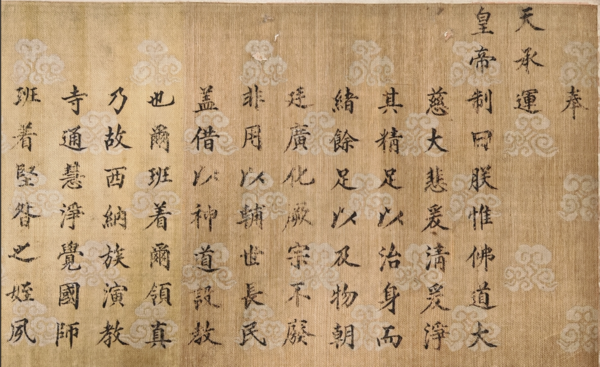 奉
天承運
皇帝制曰朕惟佛道大
慈大悲爰清爰淨
其精足以治身而
緒餘足以及物朝
廷廣化厥宗不廢
非用以輔世長民
盖借以神道設教
也爾班着爾領真
乃故西納族演教
寺通慧淨覺國師
班着堅昝之姪夙